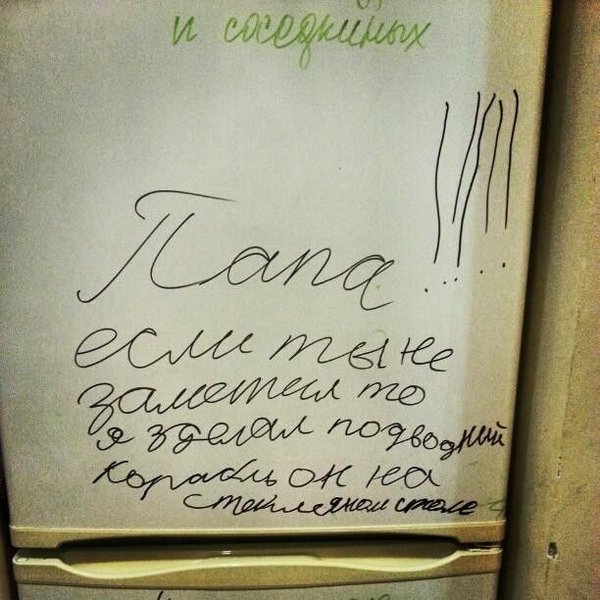 и соседкиных
Папа !!!!!
если ты не
заметил то
я зделал подводний
корабль он на
стекляном столе